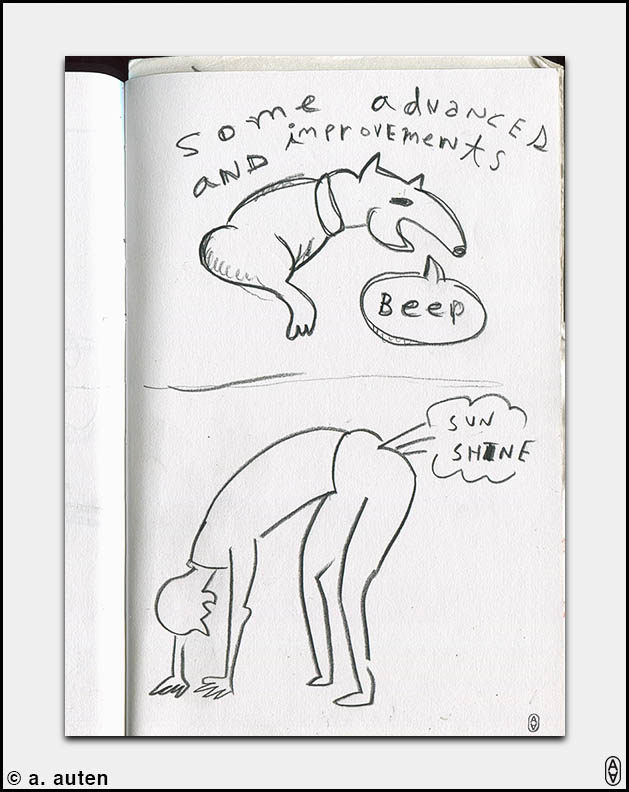 some advances
AND improvements
Beep
SUN
SHINE
© a. auten